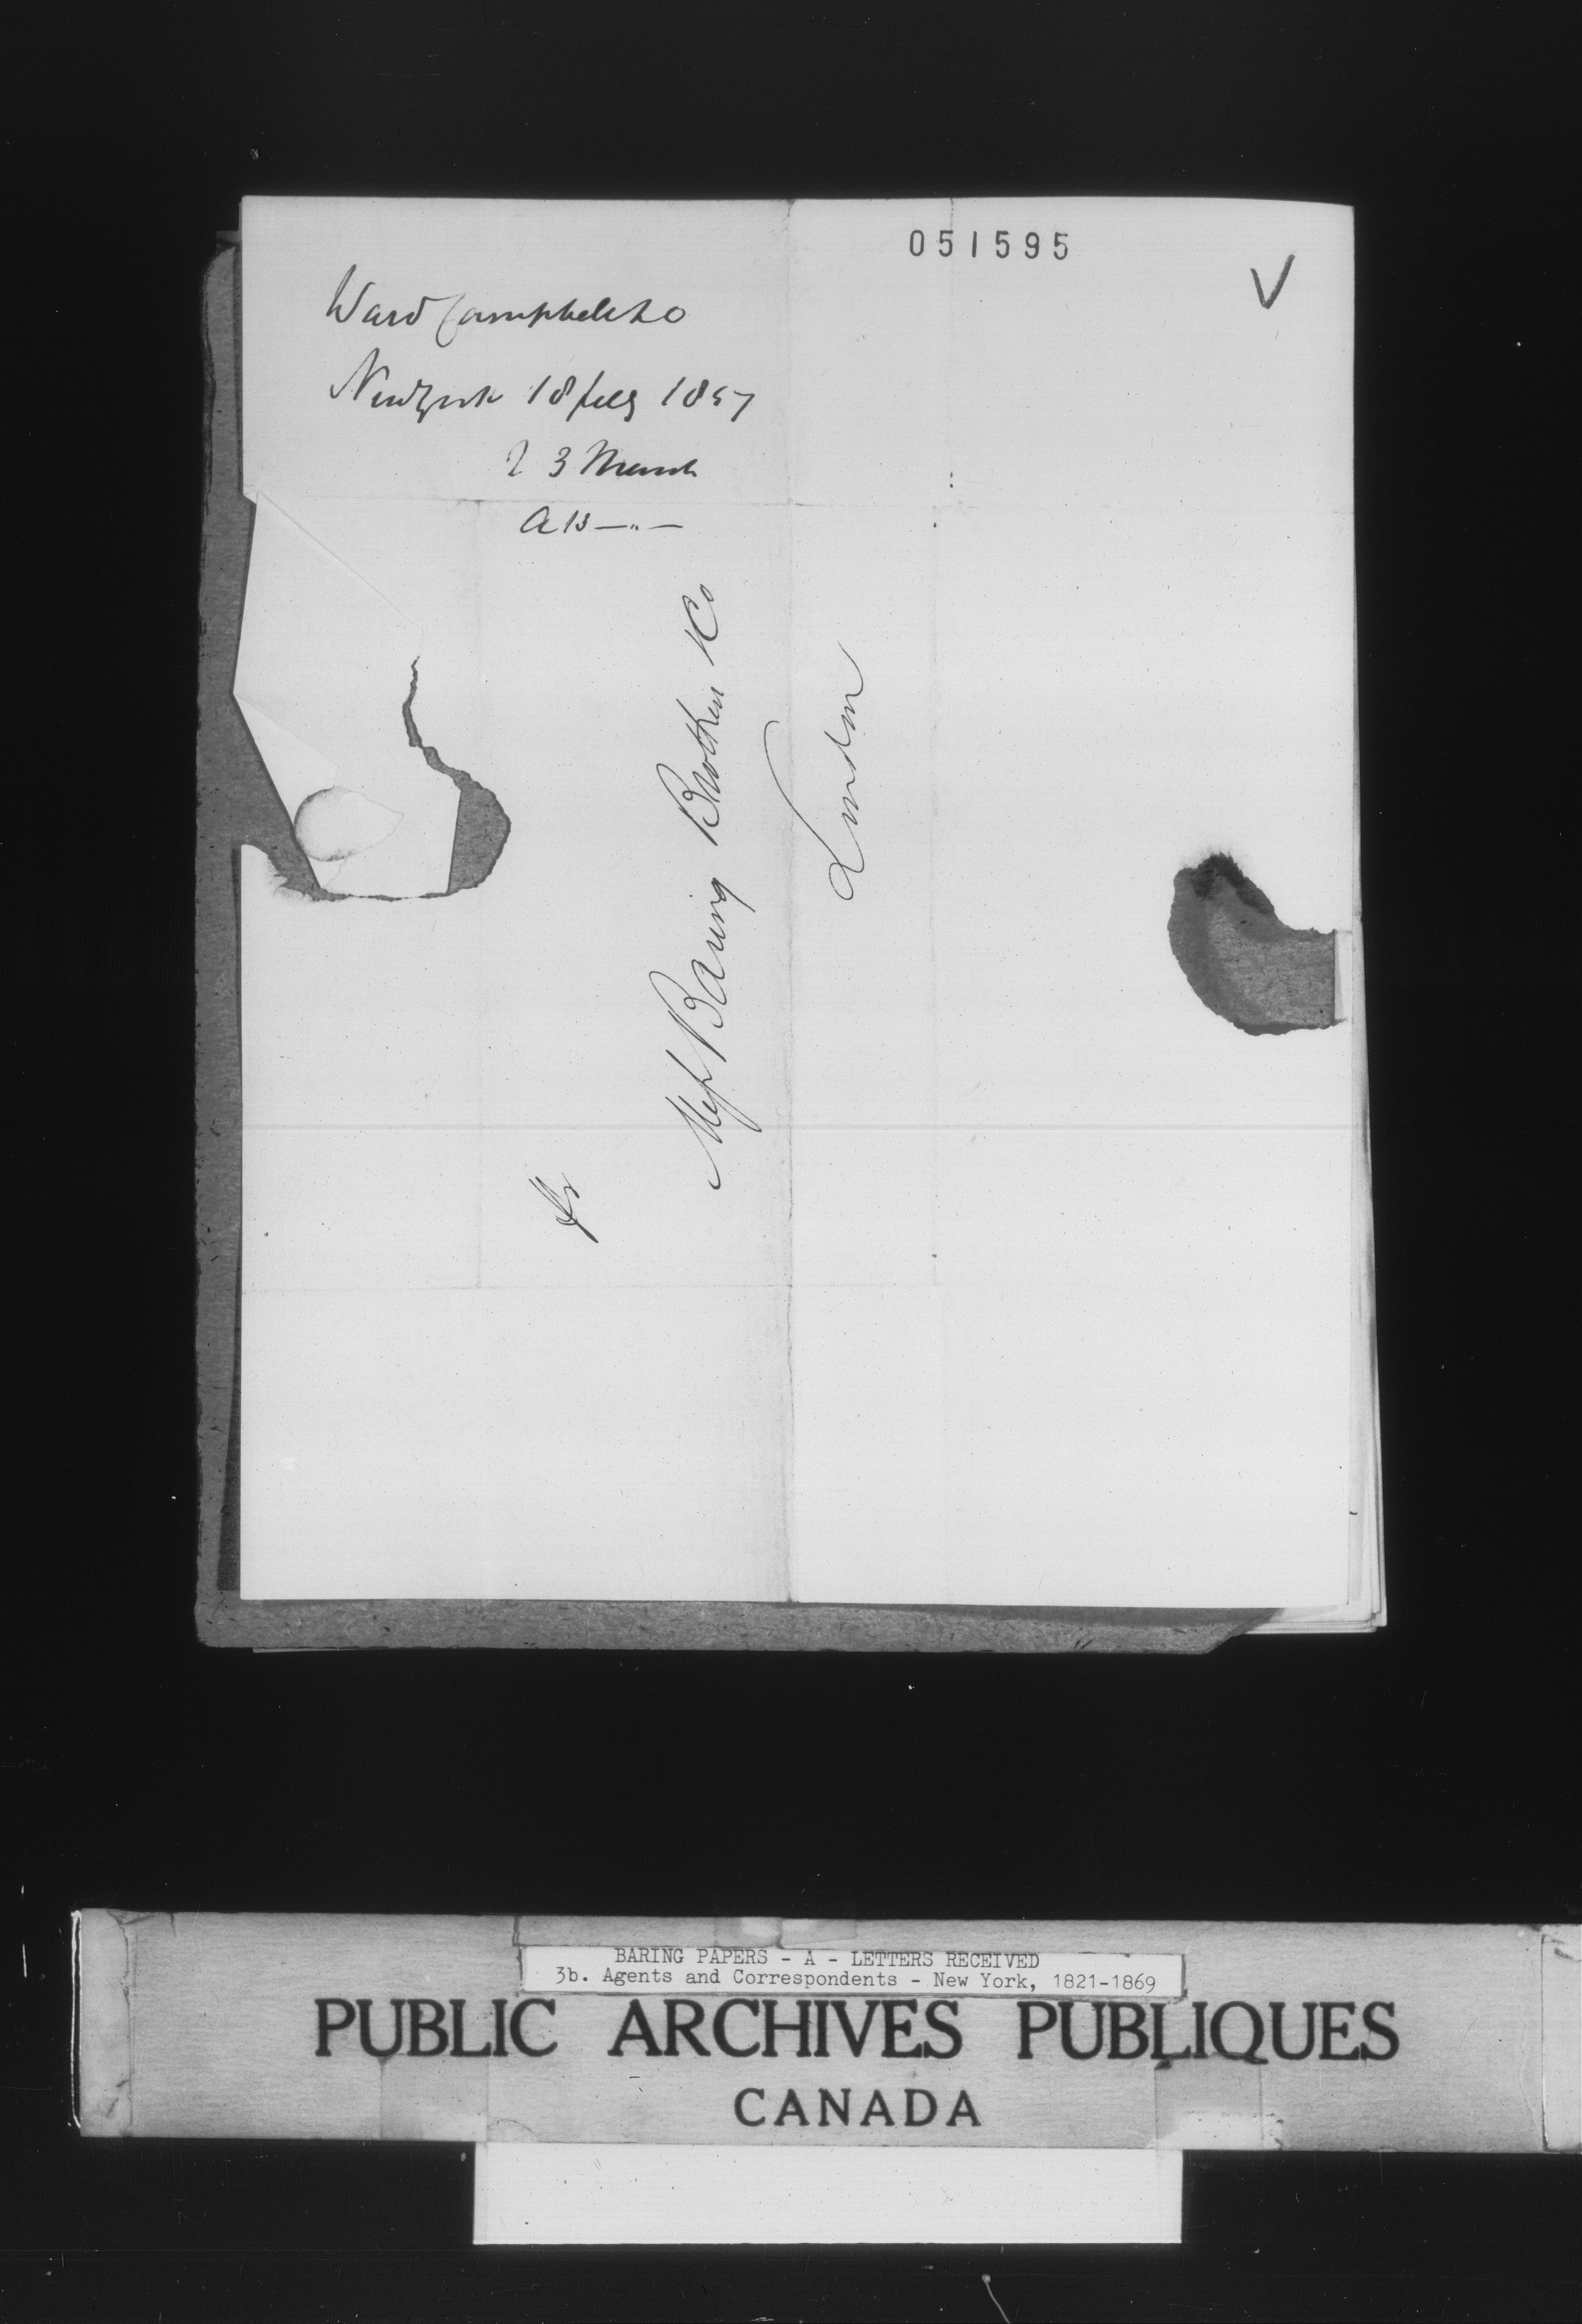 051595
V
Ward Campbell & Co
New York 18 feby 1857
R 3 March
A 13 —"—
Messrs Baring Brothers & Co
London
BARING PAPERS - A - LETTERS RECEIVED
3b. Agents and Correspondents - New York, 1821-1869
PUBLIC ARCHIVES PUBLIQUES
CANADA